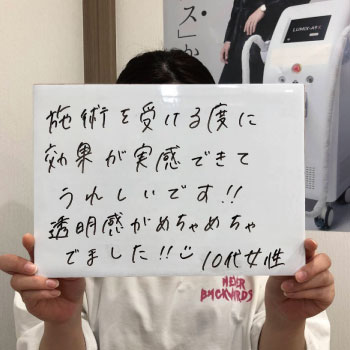 ス」か
LUMIX-A9X
施術を受ける度に
効果が実感できて
うれしいです!!
透明感がめちゃめちゃ
でました!!
10代女性
NEVER
BACKWARDS